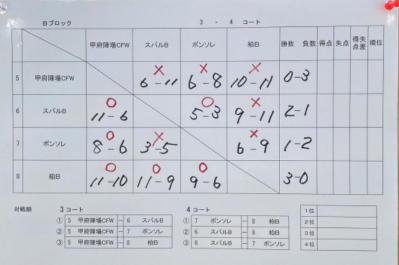 Bブロック 3 ・ 4 コート
甲府陣場CFW スバルB ボンソレ 柏B 勝数 負数 得点 失点 得失点差 順位
5 甲府陣場CFW × 6-11 × 6-8 × 10-11 0-3
6 スバルB ○ 11-6 ○ 5-3 × 9-11 2-1
7 ボンソレ ○ 8-6 × 3-5 × 6-9 1-2
8 柏B ○ 11-10 ○ 11-9 ○ 9-6 3-0
対戦順 3 コート 4 コート 1位
① 5 甲府陣場CFW - 6 スバルB ① 7 ボンソレ - 8 柏B 2位
② 5 甲府陣場CFW - 7 ボンソレ ② 6 スバルB - 8 柏B 3位
③ 5 甲府陣場CFW - 8 柏B ③ 6 スバルB - 7 ボンソレ 4位